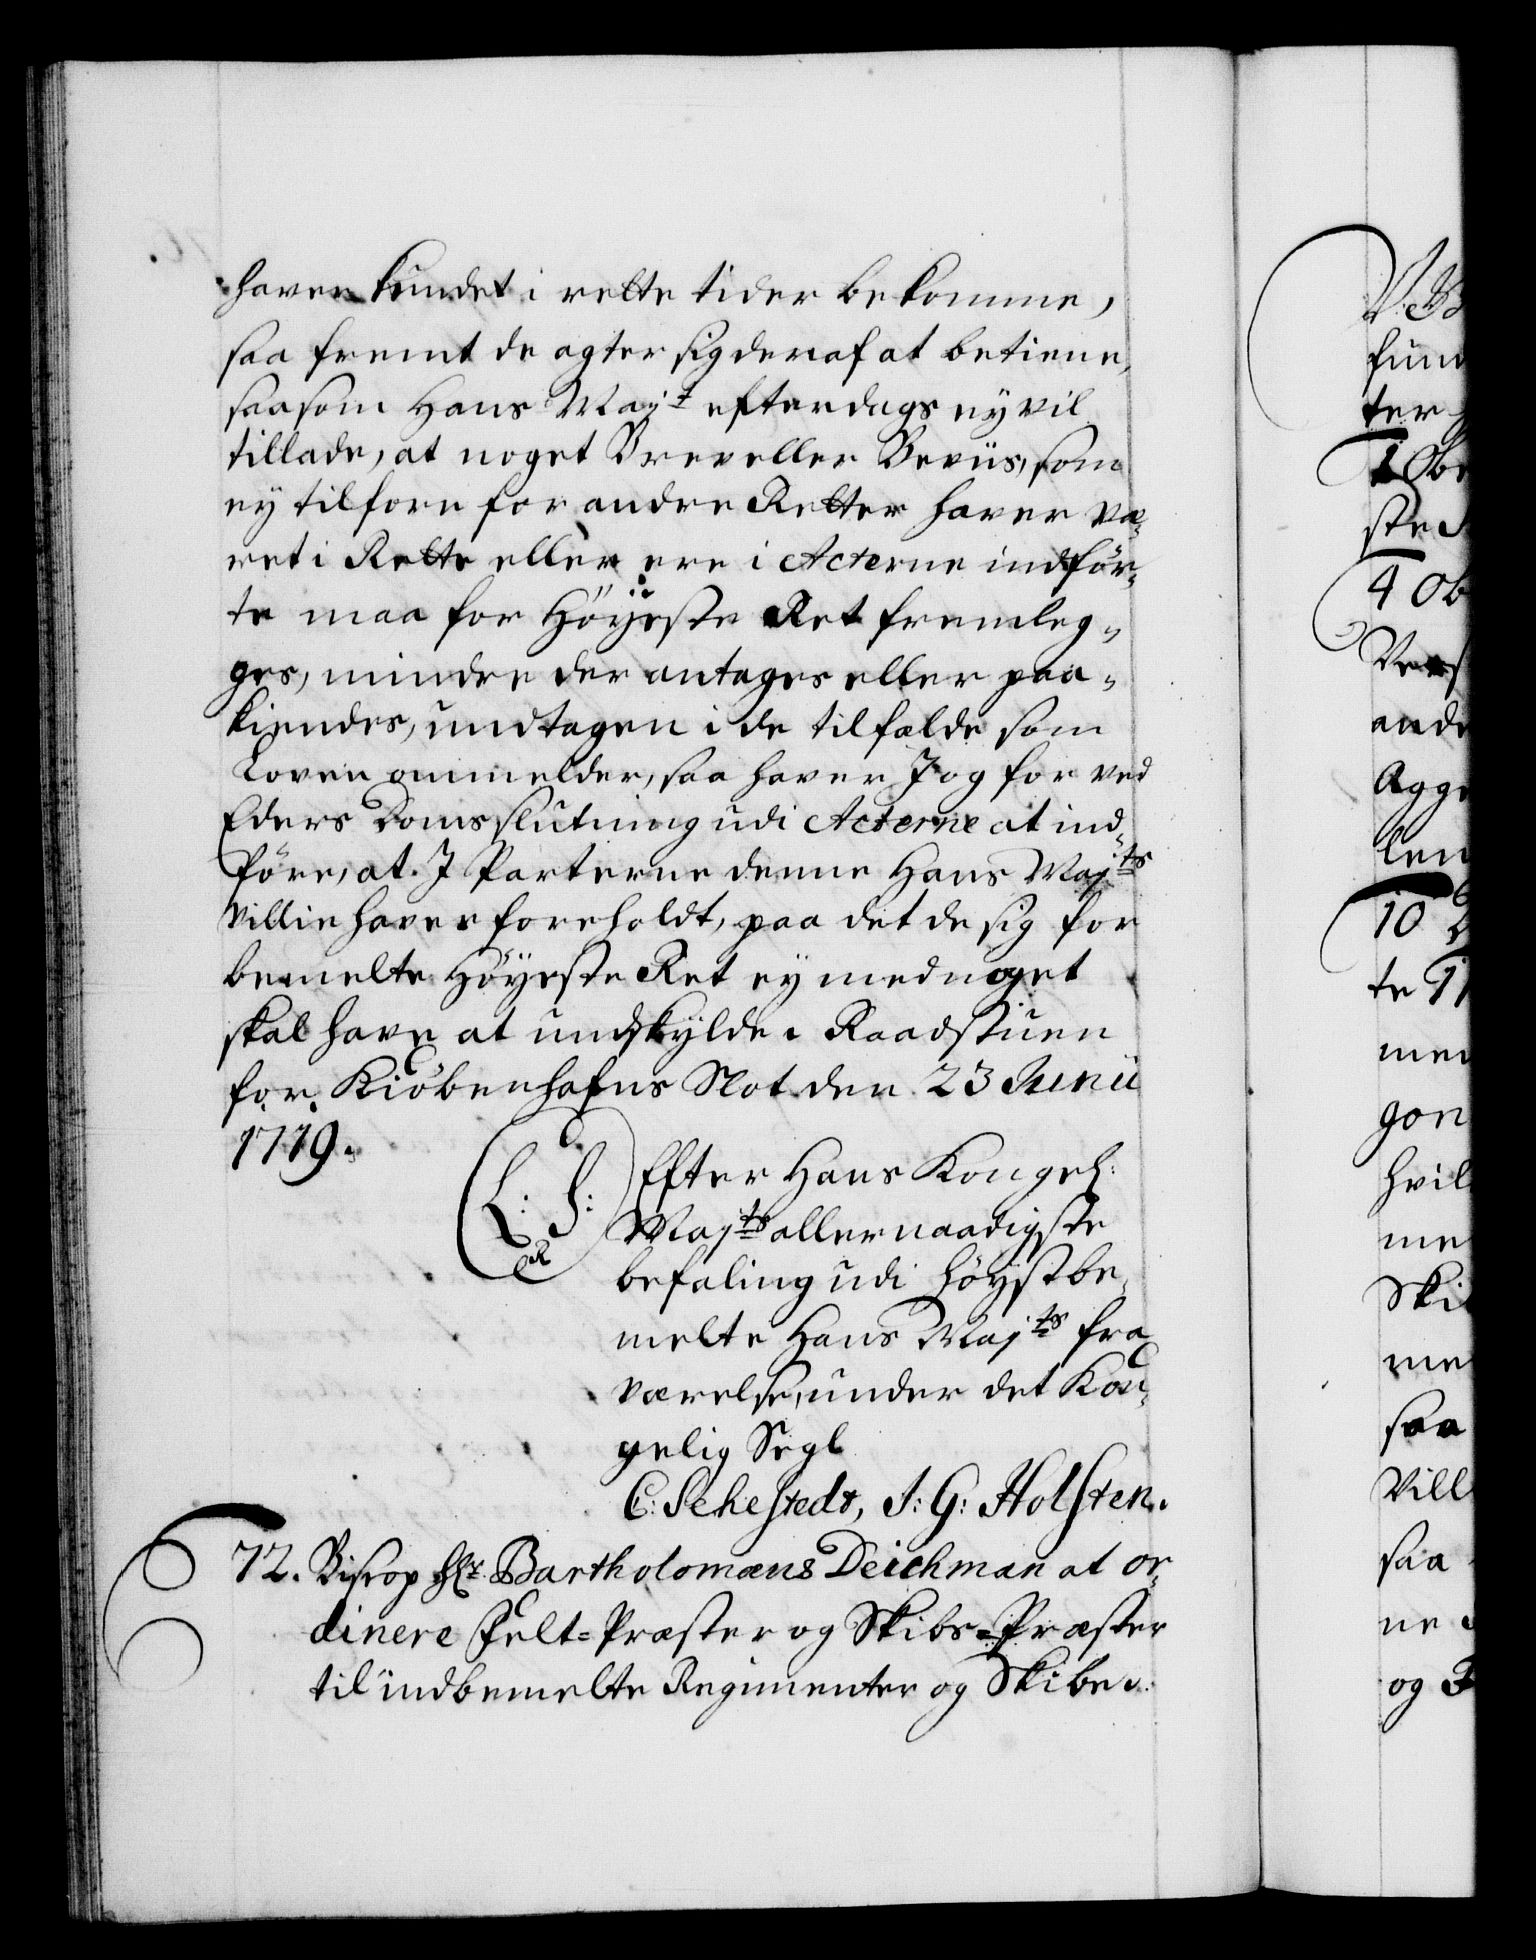 haver kundet i rette tider bekomme,
saa fremt de agter sig deraf at betiene,
saasom Hans Majt efterdags ey vil
tillade, at noget Brev eller Beviis, som
ey tilforn for andre Retter haver væ-
ret i Rette eller ere i Acterne indför-
te maa for Höyeste Ret fremleg-
ges, mindre der antages eller paa-
kiendes, undtagen i de tilfælde som
Loven ommelder, saa haver I og for ved
Eders Doms slutning udi Acterne at ind-
före, at I Parterne denne Hans Majts
Villie haver foreholdt, paa det de sig for
bemelte Höyeste Ret ey med noget
skal have at undskylde. Raadstuen
for Kiöbenhafns Slot den 23 Junii
1719.
(L: S:) Efter Hans Kongel:
Majts allernaadigste
befaling udi höystbe-
melte Hans Majts fra
værelse, under det Kon-
gelig Segl
C: Sehestedt, J: G: Holsten.
72. Biscop Hr Bartholomæus Deichman at or-
dinere Felt-Præster og Skibs-Præster
til indbemelte Regimenter og Skibe.
fun
ter
1 Ob
ste
4 Ob
Vers
ande
Agge
len
10
te 11
men
gon
hvil
me
Ski
me
saa
Vill
saa
ne
og F